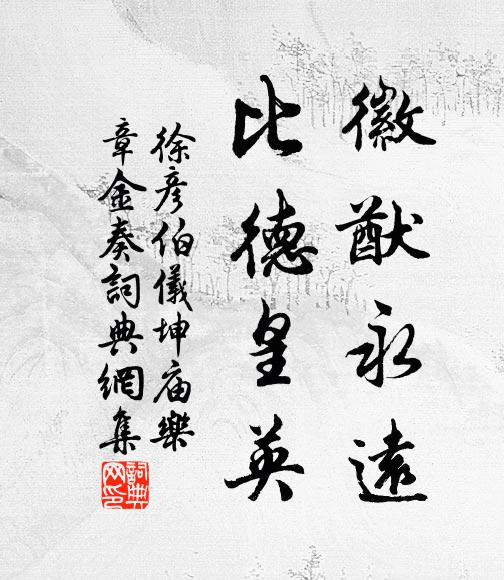 徽猷永遠
比德皇英
徐彦伯儀坤庙樂
章金奏詞典網集
詞典
网印